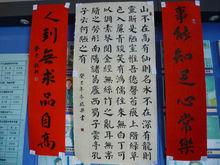 事能知足心常樂
山不在高有仙則名水不在深有龍則
靈斯是陋室惟吾德馨苔痕上階綠草
色入簾青談笑有鴻儒往來無白丁可
以調素琴閱金經無絲竹之亂耳無案
牘之勞形南陽諸葛廬西蜀子雲亭孔
子云何陋之有
人到無求品自高